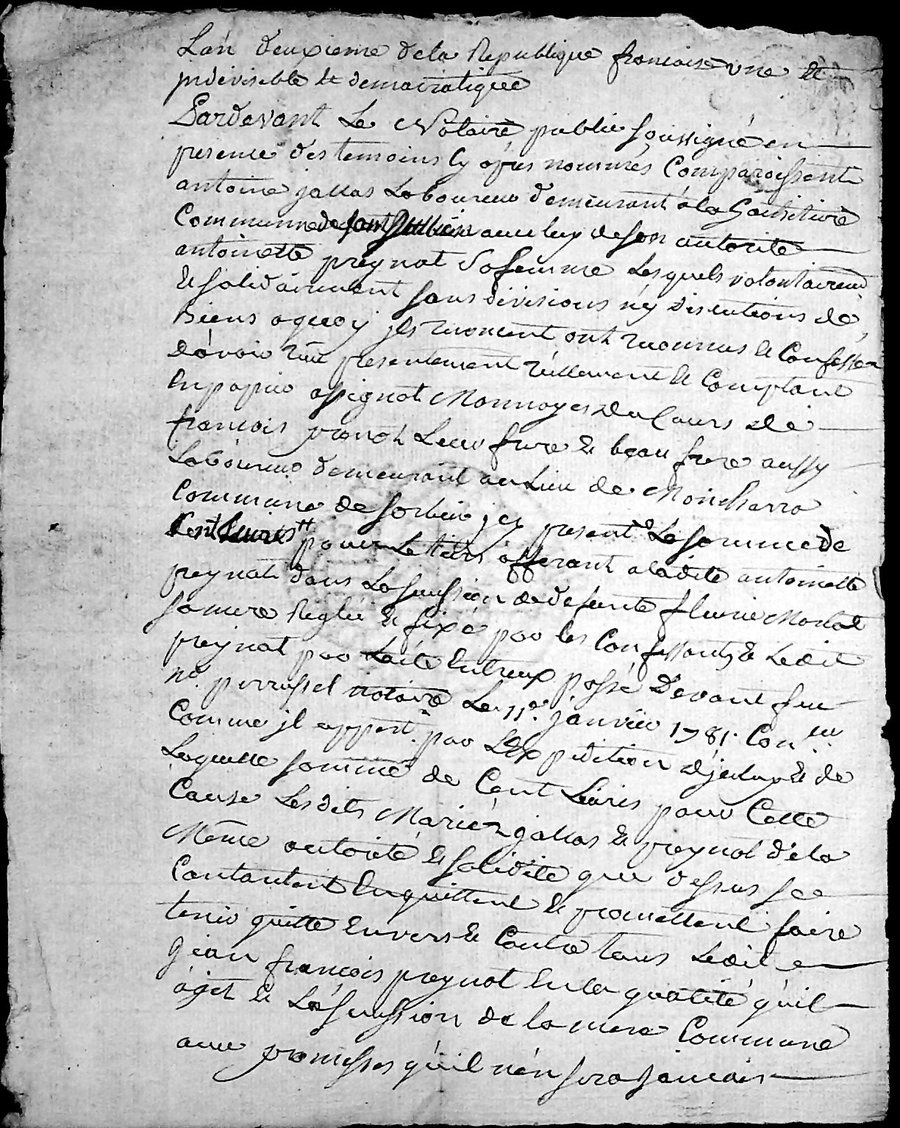 L'an deuxieme de la Republique francaise une et
indivisible et democratique
Pardevant Le Notaire public soussigné en
presence des temoins cy apres nommés Comparoissent
antoine jallas Laboureur demeurant à la
Commune de avec luy de son autorité
antoinette preynat Sa femme Lesquels volontairement
et solidairement sans divisions ny discutions de
Biens aquoy ils renoncent ont reconnus et Confessés
d'avoir reçu presentement réellement et Comptant
en papier assignat Monnoyes du Cours de
françois preynat Leur frere et beau frere aussy
Laboureur demeurant au Lieu de
Commune de Sorbier icy present La somme de
Cent Livres pour Le tiers afferant a ladite antoinette
preynat dans La sucession de defunte fleurie
sa mere Reglée et fixée par les Confessants et Ledit
preynat par Entreux passé devant feu
me perrussel notaire Le 11e janvier 1781. Con
Comme il appert par L'Expedition d'jceluy et de
Laquelle somme de Cent Livres pour Cette
Cause Lesdits Mariéz jallas et preynat de la
Même autorité et solidité que dessus se
Contentent Enquittent et promettent faire
tenir quitte Envers et Contre tous Ledit
jean françois preynat En la qualité qu'il
agit et La sucession de la mere Commune
avec promesses qu'il n'en sera jamais